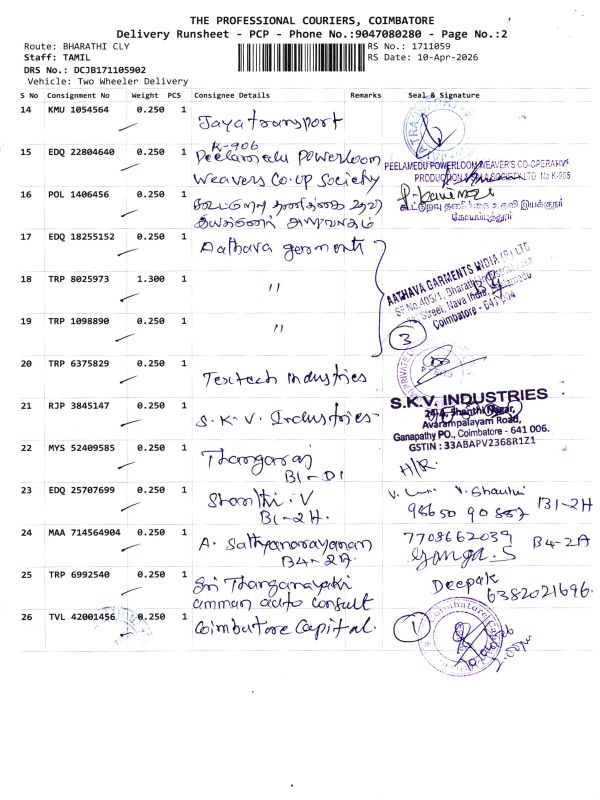 THE PROFESSIONAL COURIERS, COIMBATORE
Delivery Runsheet - PCP - Phone No.:9047080280 - Page No.:2
Route: BHARATHI CLY
RS No.: 1711059
Staff: TAMIL
RS Date: 10-Apr-2026
DRS No.: DCJB171105902
Vehicle: Two Wheeler Delivery
S No Consignment No Weight PCS Consignee Details Remarks Seal & Signature
14 KMU 1054564 0.250 1 Jaya transport
K-906
15 EDQ 22804640 0.250 1 Peelamedu Powerloom
Weavers Co.op Society
PEELAMEDU POWERLOOM WEAVER'S CO-OPERATIVE
PRODUCTION & SOCIETY LTD No K-906
16 POL 1406456 0.250 1 கூட்டுறவு தணிக்கை உதவி
இயக்குனர் அலுவலகம்
கூட்டுறவு தணிக்கை உதவி இயக்குநர்
கோயம்புத்தூர்
17 EDQ 18255152 0.250 1 Aathava garments
AATHAVA GARMENTS INDIA (P) LTD
SF No.405/1, Bharathi
Street, Nava India
Coimbatore - 641 004
18 TRP 8025973 1.300 1 "
19 TRP 1098890 0.250 1 "
3
20 TRP 6375829 0.250 1 Texitech Industries
21 RJP 3845147 0.250 1 S.K.V. Industries
S.K.V. INDUSTRIES
Shanthi Nagar,
Avarampalayam Road,
Ganapathy PO., Coimbatore - 641 006.
GSTIN : 33ABAPV2368R1Z1
22 MYS 52409585 0.250 1 Thangaraj
B1-D1
H/R.
23 EDQ 25707699 0.250 1 Shanthi.V
B1-2H.
V. Shanthi
98650 90887 B1-2H
24 MAA 714564904 0.250 1 A. Sathyanarayanan
B4-2A.
7708662039
Ganga.S B4-2A
25 TRP 6992540 0.250 1 Sri Thanganayaki
amman auto consult
Deepak
6382021696.
26 TVL 42001456 0.250 1 Coimbatore Capital.
1
Coimbatore Capital